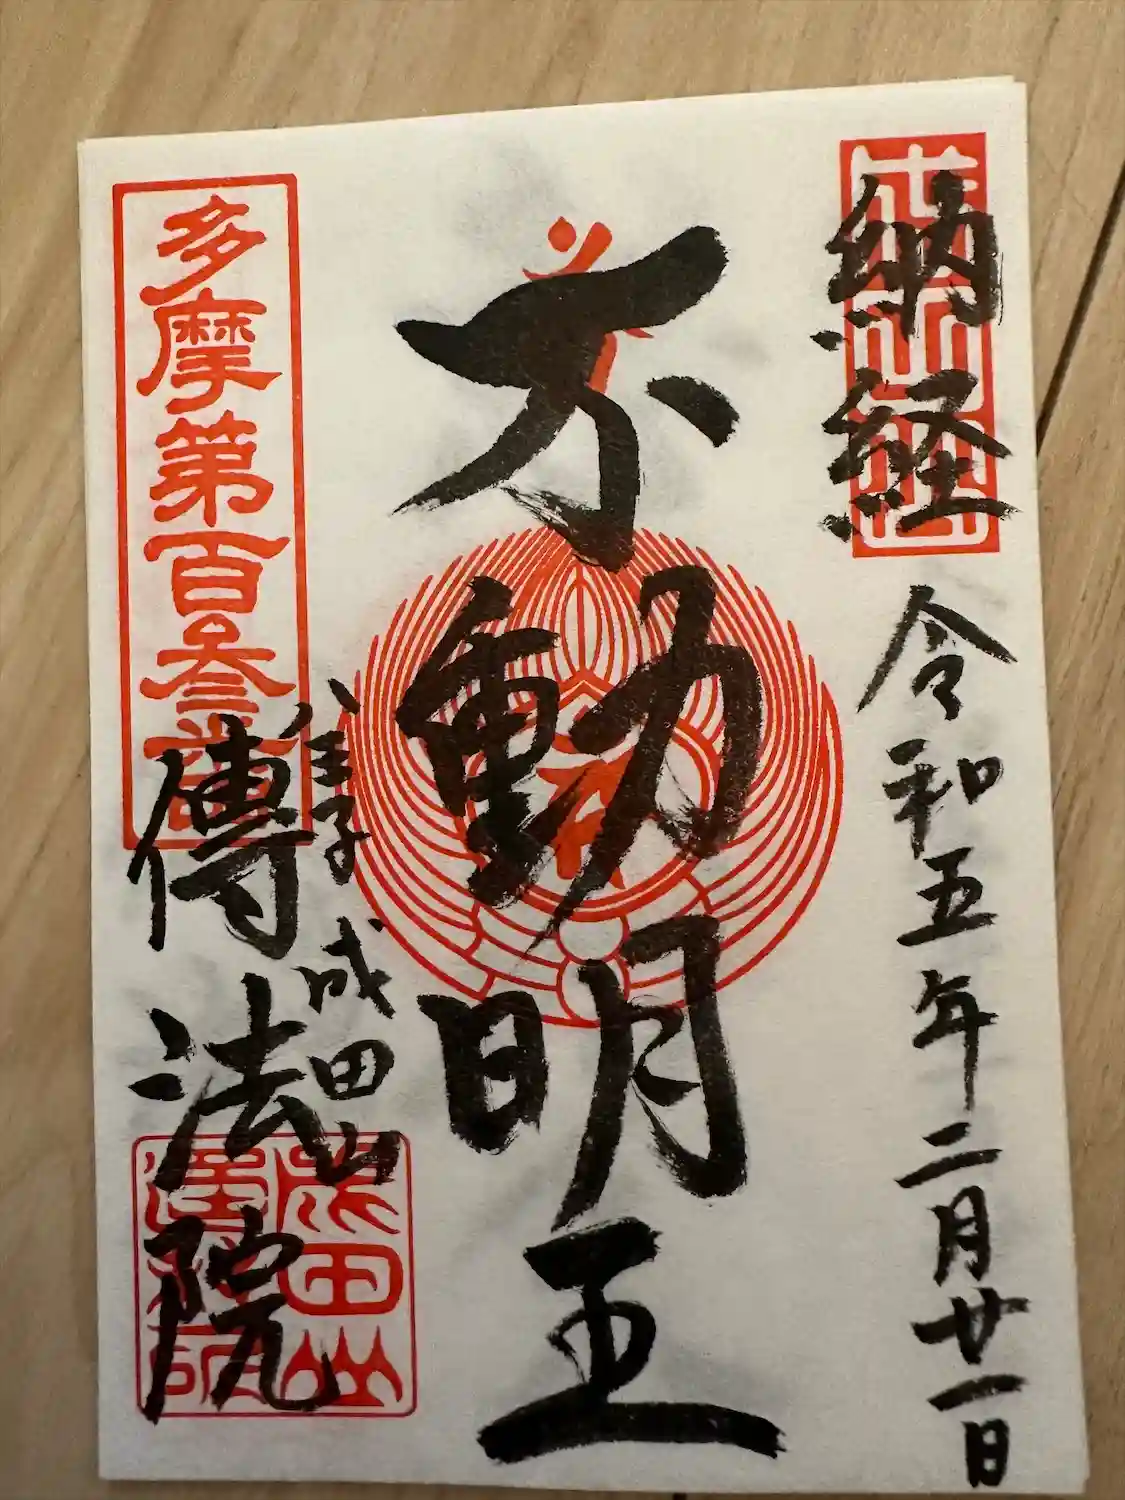 納経
令和五年二月廿一日
不動明王
八王子
成田山
傳法院
多摩第百叁番
成田山
傳法院